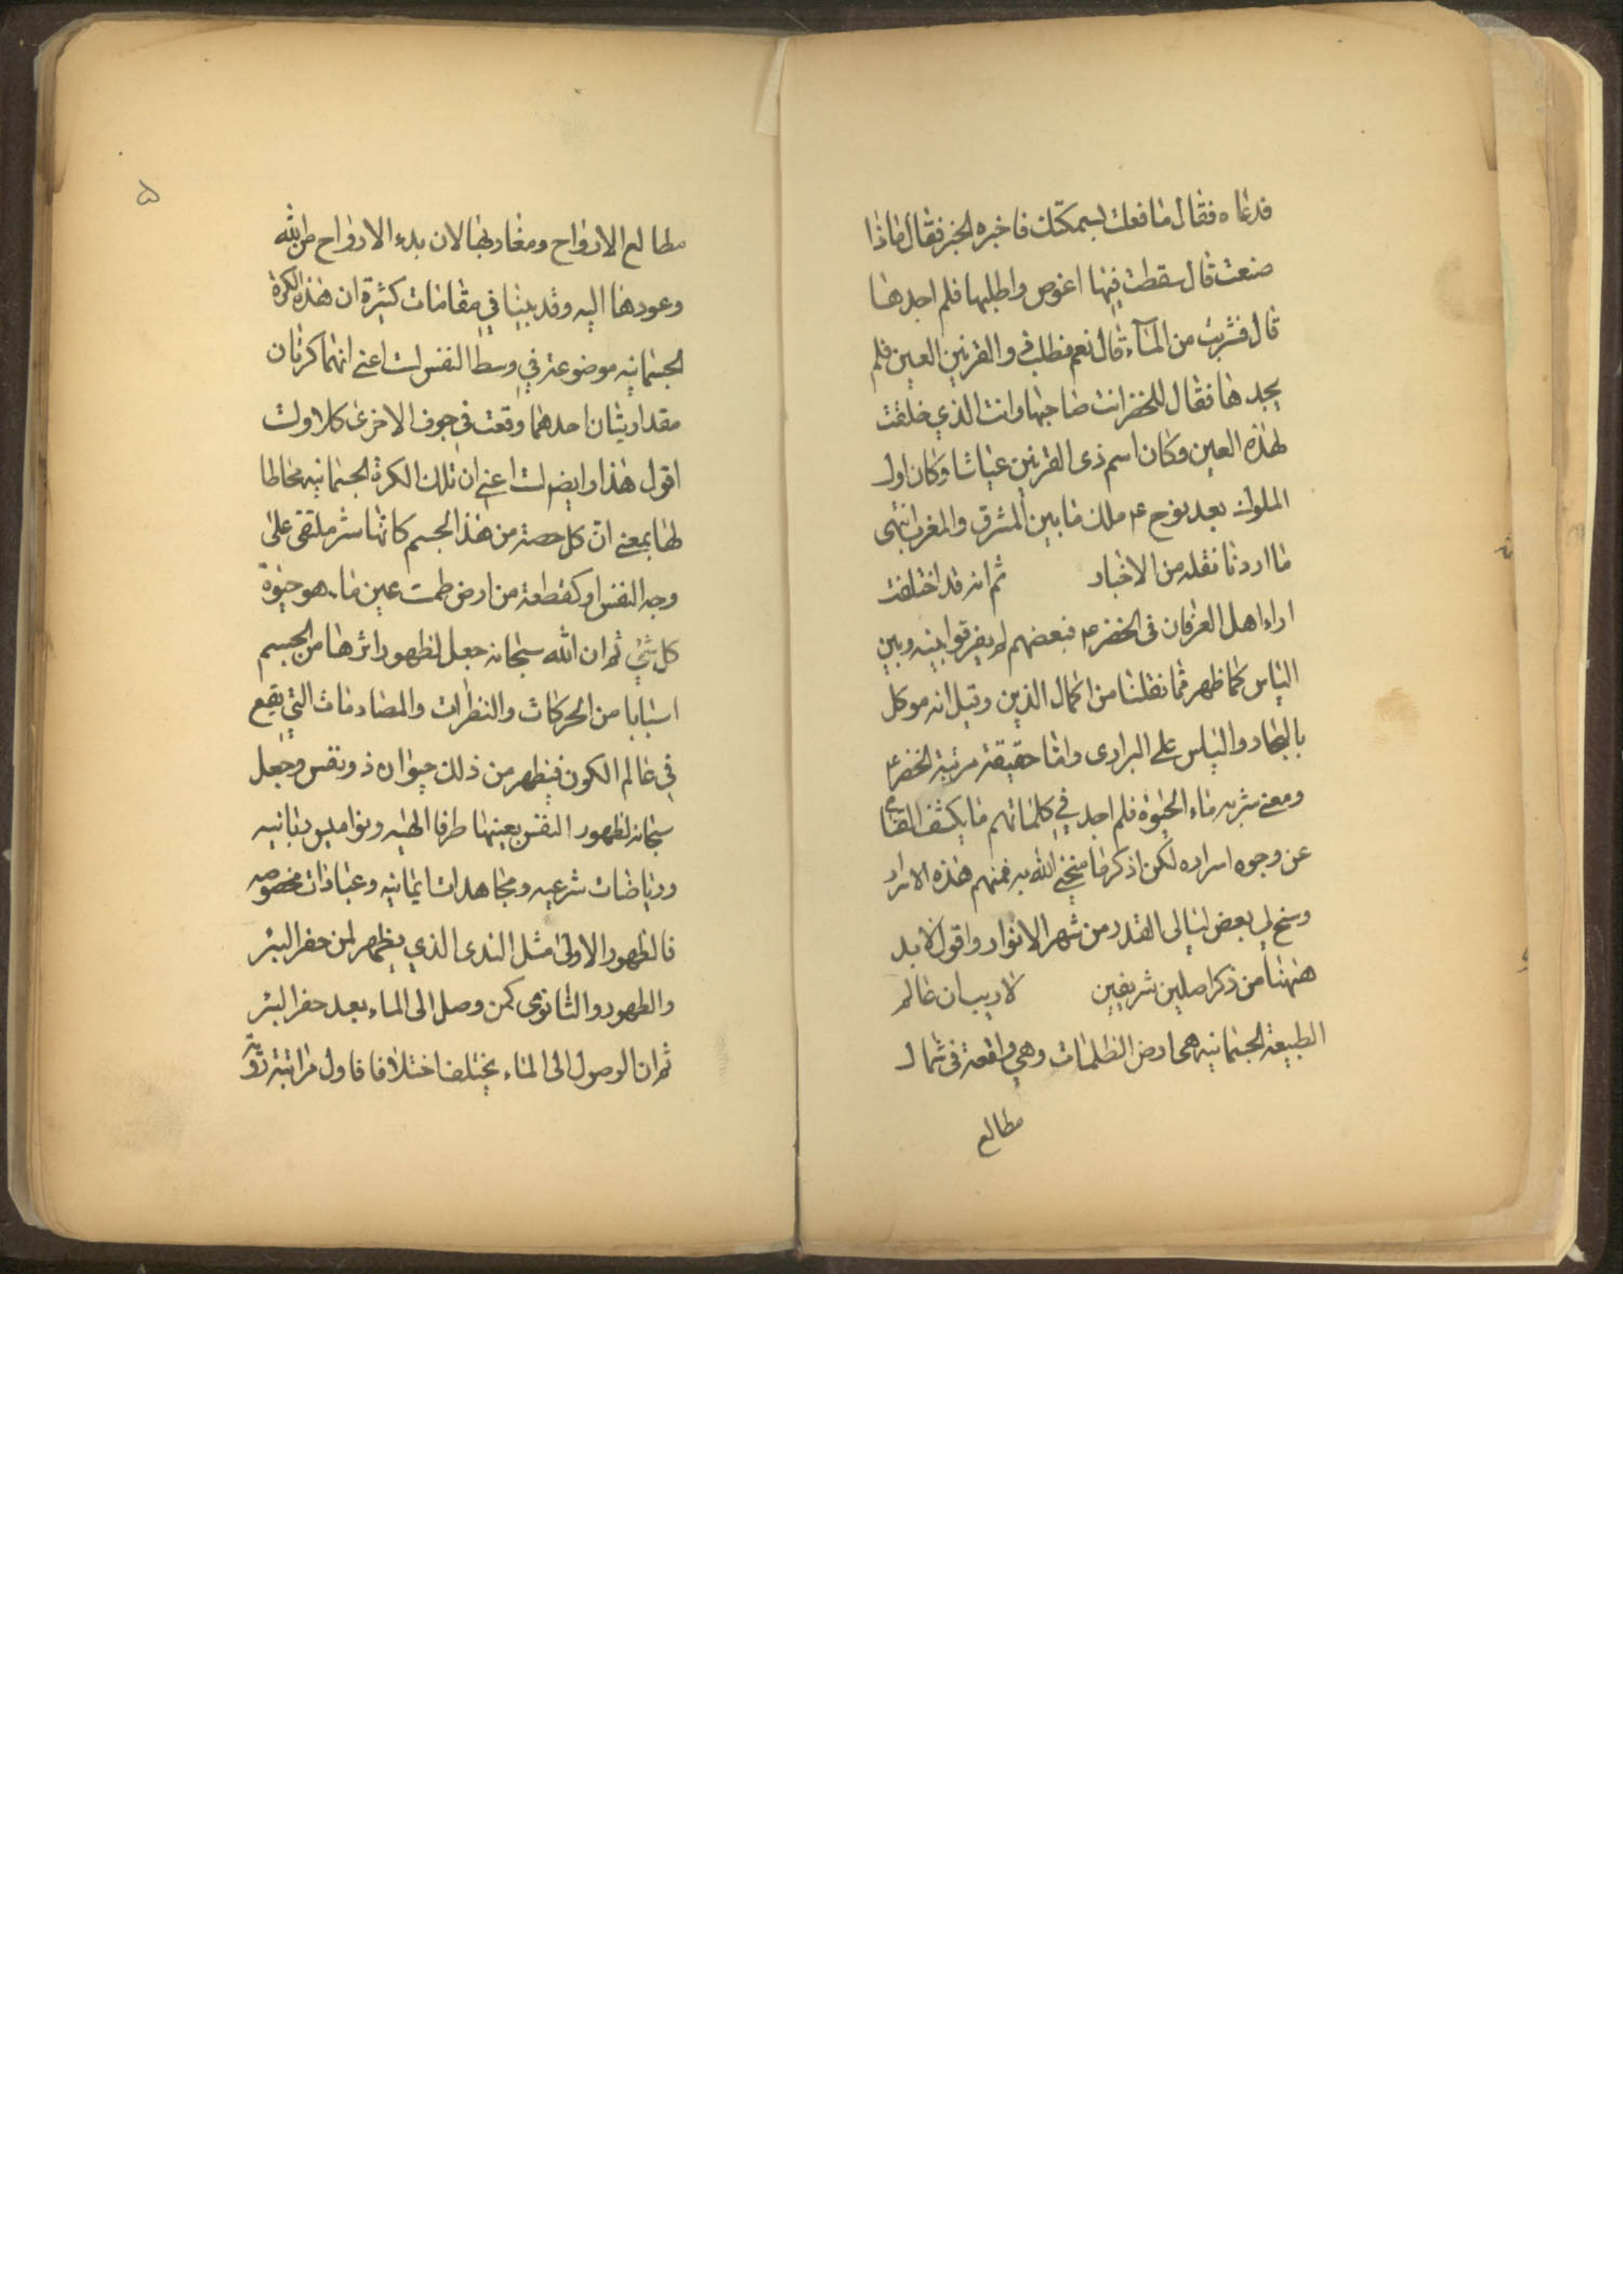 فدعاه فقال ما فعلت بسمكتك فاخبره الخبر فقال ماذا
صنعت قال سقطت فيها اغوص واطلبها فلم اجدها
قال فشربت من المآء قال نعم فطلب ذو القرنين العين فلم
يجدها فقال للخضر انت صاحبها وانت الذي خلقت
لهذه العين وكان اسم ذى القرنين عياشا وكان اول
الملوك بعد نوح ع ملك ما بين المشرق والمغرب انتهى
ما اردنا نقله من الاخبار ثم انه قد اختلفت
اراء اهل العرفان فى الخضر ع فبعضهم لم يفرقوا بينه وبين
الياس كما ظهر مما نقلنا من اكمال الدين وقيل انه موكل
بالبحار والياس على البرارى واما حقيقة مرتبة الخضر ع
ومعنى شربه ماء الحيوة فلم اجد في كلماتهم ما يكشف القناع
عن وجوه اسراده لكن اذكر ما منحنى الله به فمنهم هذه الاسرار
وسنح لي بعض ليالى القدر من شهر الانوار واقول لابد
ههنا من ذكر اصلين شريفين لا ريب ان عالم
الطبيعة الجسمانيه هى ارض الظلمات وهي واقعة فى شمال
مطالع
۵
مطالع الارواح ومغاربها لان بدء الارواح من الله
وعودها اليه وقد بينا في مقامات كثيرة ان هذه الكرة
الجسمانيه موضوعة في وسط النفس لست اعنى انهما كرتان
مقداريتان احدهما وقعت في جوف الاخرى كلا ولست
اقول هذا وايضا لست اعنى ان تلك الكرة الجسمانيه محاطا
لها بمعنى ان كل حصة من هذا الجسم كانها ستر ملقى على
وجه النفس او كقطعة من ارض طمت عين ماء هو حيوة
كل شئ ثم ان الله سبحانه جعل لظهور اثرها من الجسم
اسبابا من الحركات والنظرات والمصادمات التي يقع
في عالم الكون فيظهر من ذلك حيوان ذو نفس وجعل
سبحانه لظهور النفس بعينها طرقا الهيه ونواميس ربانيه
ورياضات شرعيه ومجاهدات ايمانيه وعبادات مخصوصه
فالظهور الاولى مثل الندى الذي يظهر لمن حفر البئر
والظهور والثانوى كمن وصل الى الماء بعد حفر البئر
ثم ان الوصول الى الماء يختلف اختلافا فاول مراتبه رؤية